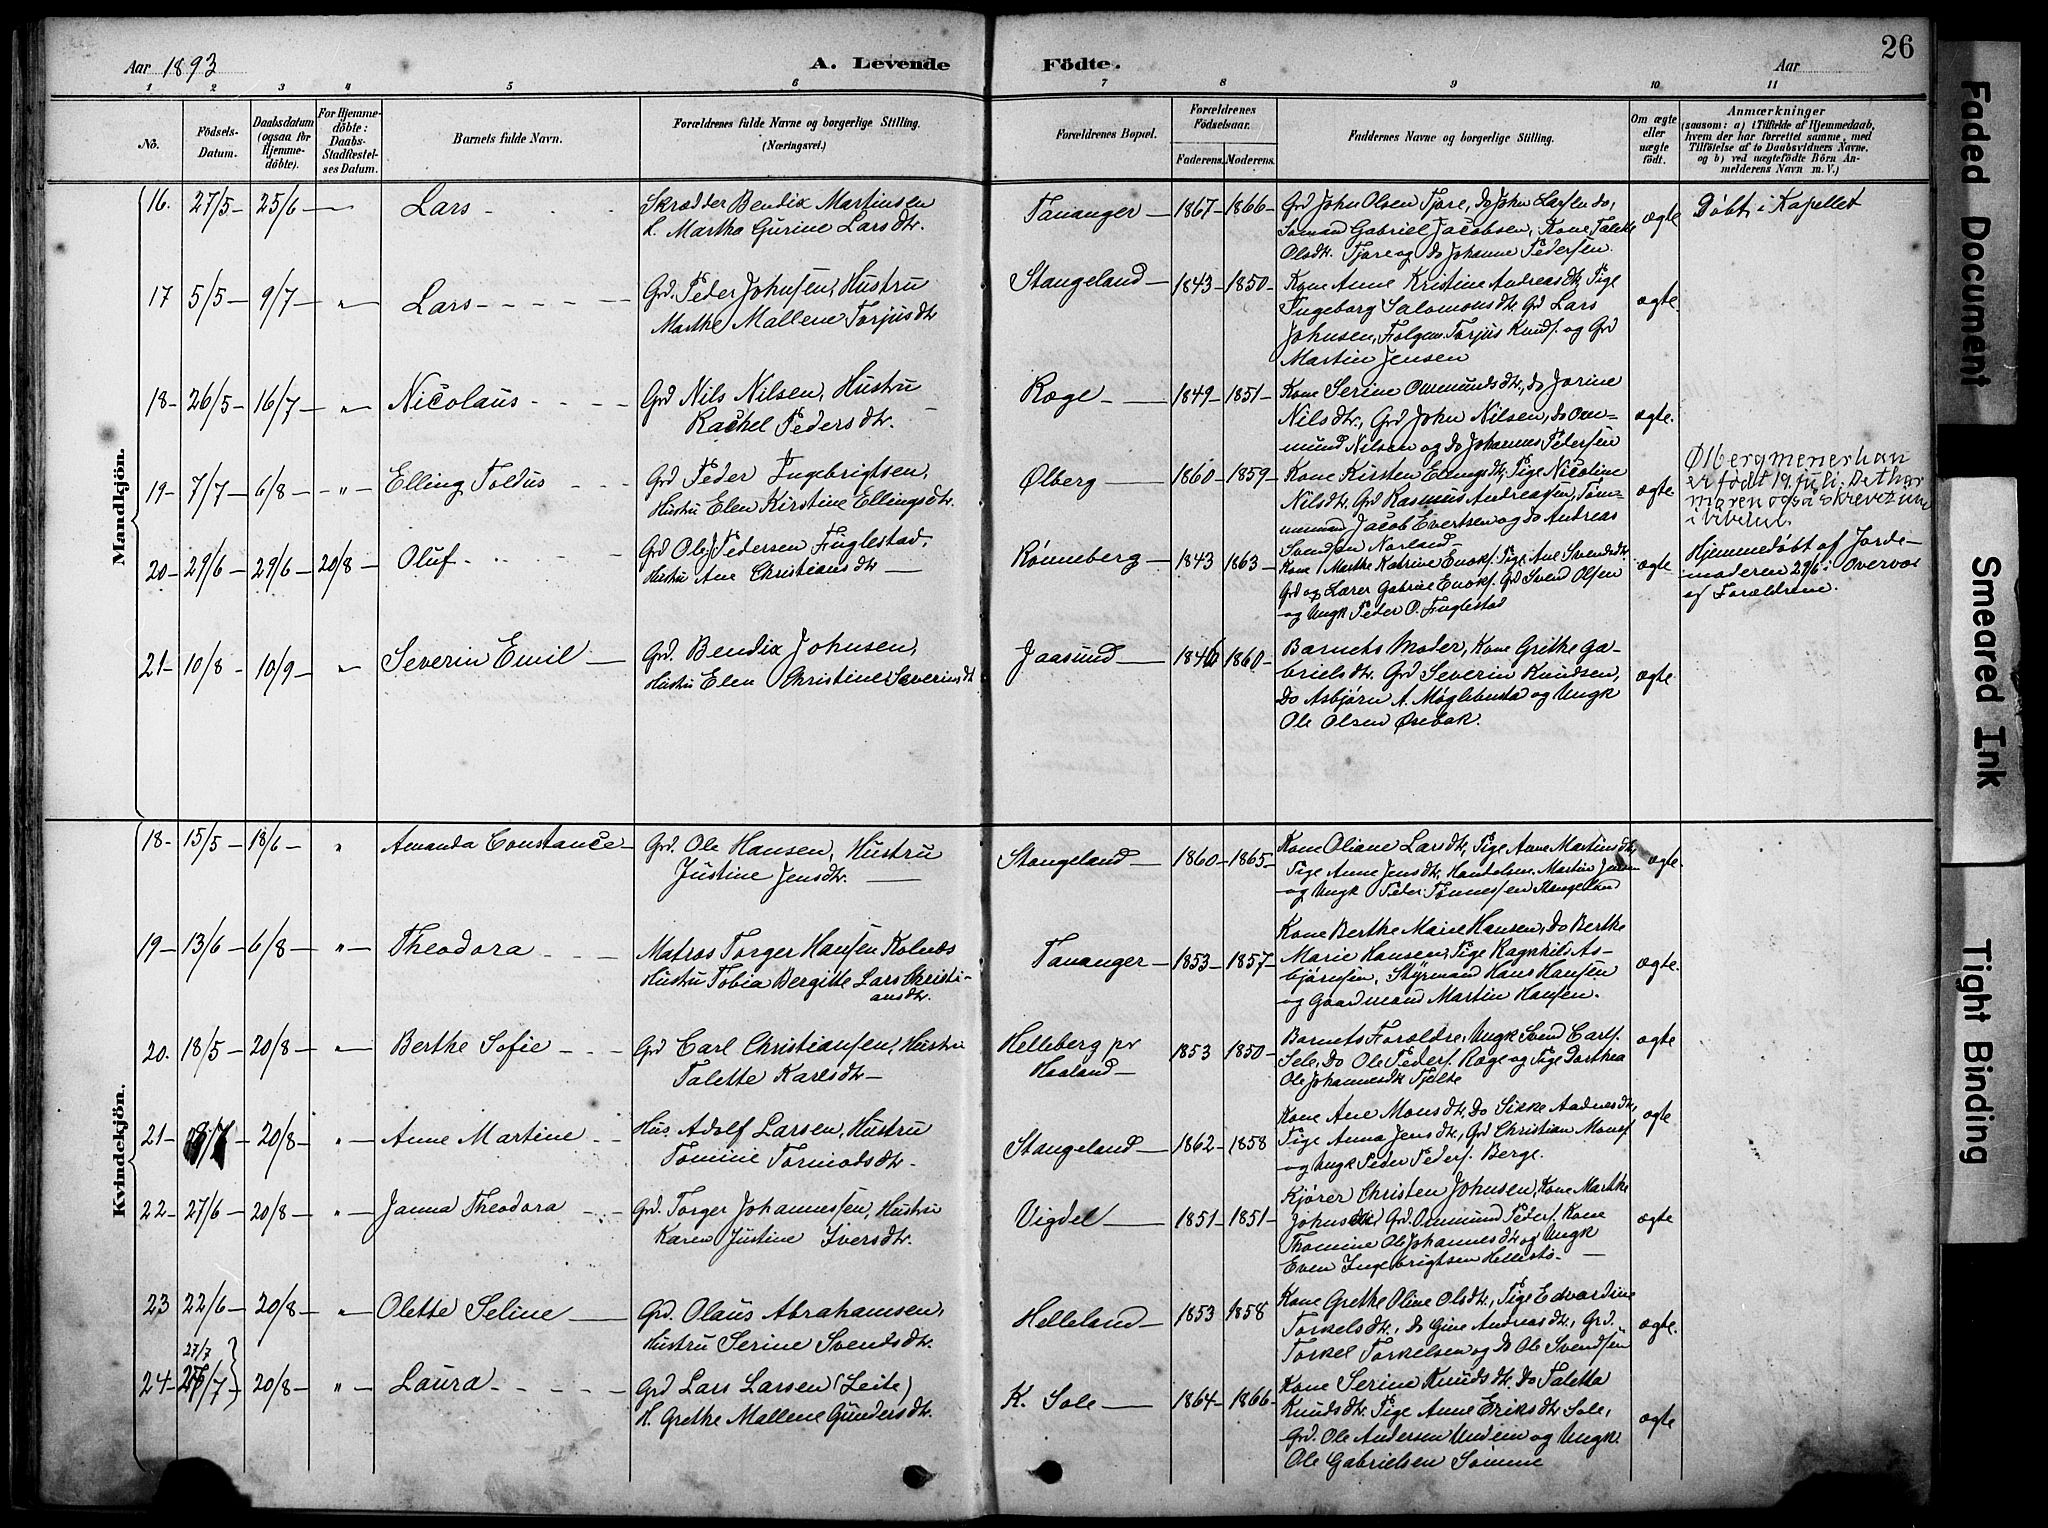 Aar 1893
A. Levende
Födte.
Aar
26
1 2 3 4 5 6 7 8 9 10 11
No.
Födsels-
Datum.
Daabsdatum
(ogsaa for
Hjemme-
döbte).
For Hjemme-
döbte:
Daabs-
Stadfæstel-
ses Datum.
Barnets fulde Navn.
Forældrenes fulde Navne og borgerlige Stilling.
(Næringsvei.)
Forældrenes Bopæl.
Forældrenes
Födselsaar.
Faderens. Moderens.
Faddernes Navne og borgerlige Stilling.
Om ægte
eller
uægte
födt.
Anmærkninger
(saasom: a) i Tilfælde af Hjemmedaab,
hvem der har forrettet samme, med
Tilföielse af to Daabsvidners Navne.
og b) ved uægtefödte Börn An-
melderens Navn m. V.)
Mandkjön.
16. 27/5 - 25/6 - Lars
Skrædder Bendix Martinsen
H. Martha Gurine Larsdtr.
Tananger - 1867 - 1866
Grd John Olsen Tjore, Do John Larsen do,
Sømand Gabriel Jacobsen, Kone Talette
Olsdtr. Tjore og Do Johanne Pedersen
ægte
Døbt i Kapellet
17 5/5 - 9/7 - " - Lars
Grd. Peder Johnsen, Hustru
Marthe Mallene Torjusdtr
Stangeland - 1843 - 1850
Kone Anne Kristine Andreasdtr, Pige
Ingeborg Salomonsdtr. Grd Lars
Johnsen, Folgem. Torjus Knuds. og Grd
Martin Jensen
ægte.
18 - 26/5 - 16/7 - " - Nicolaus
Grd Nils Nilsen, Hustru
Rachel Pedersdtr.
Ræge - 1849 - 1851
Kone Serine Ommundsdtr., do Jorine
Nilsdtr., Grd John Nilsen, do Om-
mund Nilsen og Do Johannes Pedersen
ægte.
19 - 7/7 - 6/8 - " - Elling Toldus
Grd Peder Ingebrigtsen,
Hustru Elen Kirstine Ellingsdtr.
Ølberg - 1860 - 1859
Kone Kirsten Ellingsdtr, Pige Nicoline
Nilsdtr. Grd Rasmus Andreassen, Tøm-
mermand Jacob Evertsen og Do Andreas
Svendsen Norland
ægte
Ølberg mener han
er født 19 juli. Det har
moren også skrevet inn
i bibelen.
20 - 29/6 - 29/6 - 20/8 - Oluf
Grd Ole Pedersen Fuglestad,
Hustru Ane Christiansdtr
Rønneberg - 1843 - 1863
Kone Marthe Katrine Enoks. Pige Ane Svendsdtr.
Grd og Lærer Gabriel Enoks. Grd Svend Olsen
og Ungk Peder O. Fuglestad
ægte
Hjemmedøbt af Jorde-
moderen 29/6 i Overvær
af Forældrene.
21 - 10/8 - 10/9 - " Severin Emil
Grd. Bendix Johnsen,
Hustru Elen Christine Severinsdtr
Jaasund - 1846 - 1860
Barnets Moder, Kone Grethe Ga-
brielsdtr. Grd Severin Knudsen,
Do Asbjørn A. Møglebusta og Ungk
Ole Olsen Ørebak.
ægte
Kvindekjön.
18 - 15/5 - 18/6 - " Amanda Constance
Grd. Ole Hansen, Hustru
Justine Jensdtr.
Stangeland - 1860 - 1865
Kone Oliane Larsdtr, Pige Anne Martinsdtr,
Pige Anne Jensdtr, Handelsm. Martin Jensen
og Ungk Peder Tønnessen Stangeland
ægte.
19 - 13/6 - 6/8 - " - Theodora
Matros Torger Hansen Kolnes
Hustru Tobia Bergitte Lars Christi-
ansdtr.
Tananger - 1853 - 1857
Kone Berthe Marie Hansen, Do Berthe
Marie Hansen, Pige Ragnhild As-
bjørnsen, Styrmand Hans Hansen
og Gaardmand Martin Hansen.
ægte.
20. 18/5 - 20/8 - " - Berthe Sofie
Grd Carl Christiansen, Hustru
Talette Karlsdtr
Helleberg pr
Haaland - 1853 1850
Barnets Foreldre, Ungk Svend Carls.
Sele, Do Ole Peders. Ræge og Pige Dorthea
Ole Johannesdtr Tjelte
ægte
21 - 20/8 - " - Anne Martine
Hus. Adolf Larsen, Hustru
Tomine Tormodsdtr.
Stangeland - 1862 - 1858
Kone Ane Monsdtr, Do Sikke Aadnesdtr,
Pige Anna Jensdtr, Grd Christian Mons.
og Ungk Peder Peders. Berge.
ægte
22 - 27/6 - 20/8 - " - Janna Theodora
Grd. Torger Johannessen, Hustru
Karen Justine Iversdtr.
Vigdel - 1851 - 1851
Kjører Christen Johnsen, Kone Marthe
Johnsdtr Grd Ommund Peders. Kone
Thomine Ole Johannesdtr og Ungk
Even Ingebrigtsen Hellestø
ægte
23 22/6 - 20/8 - " - Olette Seline
Grd. Olaus Abrahamsen,
Hustru Serine Svendsdtr.
Helleland - 1853 1858
Kone Grethe Oline Olsdtr., Pige Edvardine
Torkelsdtr., Do Gine Andreasdtr, Grd.
Torkel Torkelsen og Do Ole Svendsen
ægte.
27/7
24 - 25/7 - 20/8 - " - Laura
Grd Lars Larsen (Leite)
H. Grethe Mallene Gundersdtr.
K. Sole - 1864 - 1866
Kone Serine Knudsdtr. Do Taletta
Knudsdtr. Pige Anne Eriksdtr Sole,
Grd. Ole Andersen Undeim og Ungk.
Ole Gabrielsen Sømme
ægte
Faded Document
Smeared Ink
Tight Binding